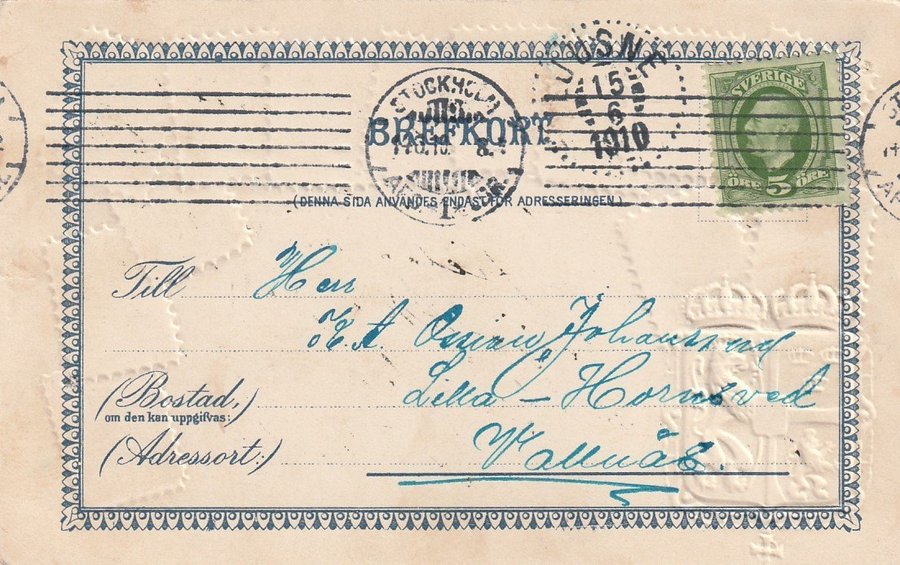 LJUSNE
15
6
1910
STOCKHOLM
BREFKORT
SVERIGE
ÖRE 5 ÖRE
1
(DENNA SIDA ANVÄNDES ENDAST FÖR ADRESSERINGEN.)
Till Herr
K. A. Oscar Johansson
(Bostad,) Lilla - Hornsved
om den kan uppgifvas:
(Adressort:) Vallvik